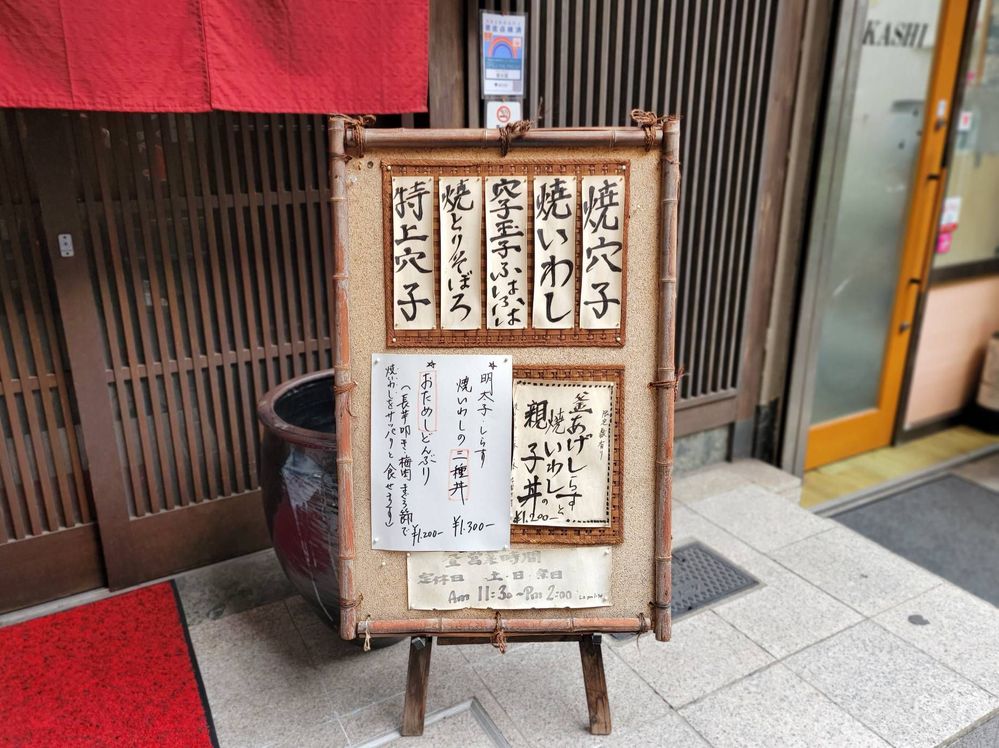 焼穴子
焼いわし
穴子玉子ふはふは
焼とりそぼろ
特上穴子
明太子・しらす
焼いわしの三種丼
¥1.300-
おためしどんぶり
(長芋叩き・梅肉まろ節で
焼いわしをサッパリと食せます)
¥1.200-
限定数有り
釜あげしらすと
焼いわしの
親子丼
¥1.200-
営業時間
定休日 土・日・祭日
Am 11:30~Pm 2:00
KASHI